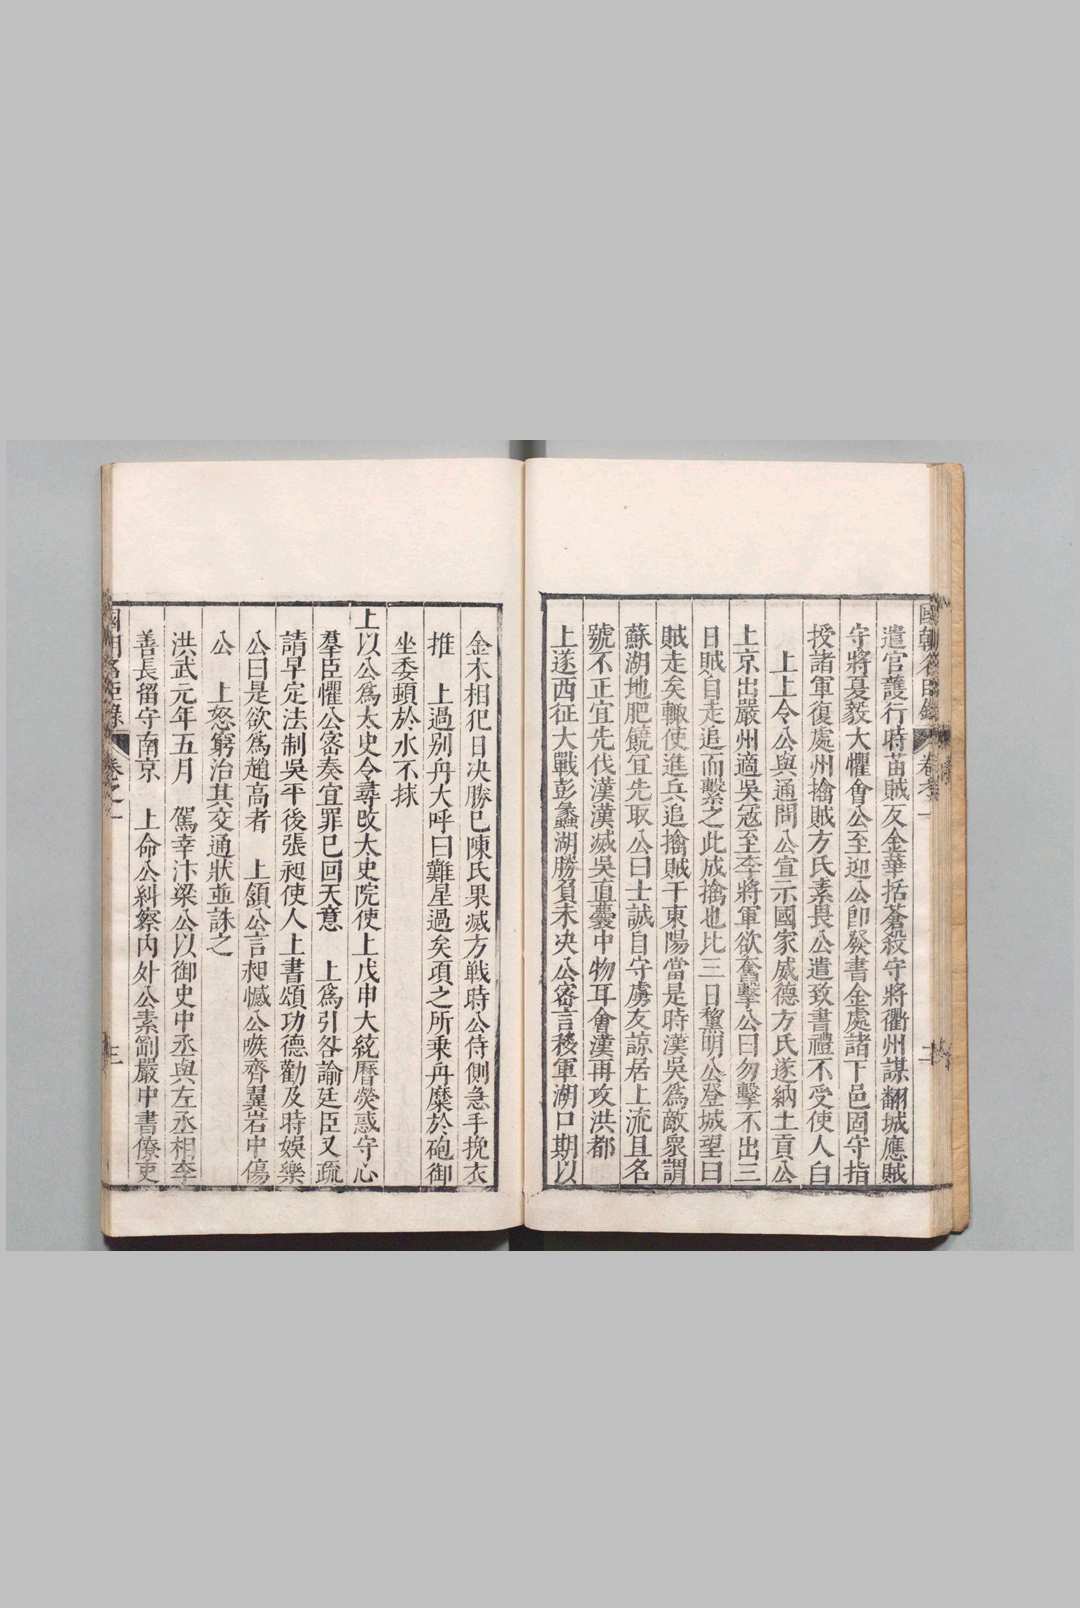 遣官護行時苗賊反金華括蒼殺守將衢州謀翻城應賊
守將夏毅大懼會公至迎公卽發書金處諸下邑固守指
授諸軍復處州擒賊方氏素畏公遣致書禮不受使人白
上上令公與通問公宣示國家威德方氏遂納土貢公
上京出嚴州適吳寇至李將軍欲奮擊公曰勿擊不出三
日賊自走追而繫之此成擒也比三日黎明公登城望曰
賊走矣輙使進兵追擒賊于東陽當是時漢吳爲敵衆謂
蘇湖地肥饒宜先取公曰士誠自守虜友諒居上流且名
號不正宜先伐漢漢滅吳直囊中物耳會漢再攻洪都
上遂西征大戰彭蠡湖勝負未决公密言移軍湖口期以
金木相犯日决勝巳陳氏果滅方戰時公侍側急手挽衣
推 上過别舟大呼曰難星過矣項之所乗舟糜於砲御
坐委頓於水不捄
上以公爲太史令尋改太史院使上戊申大統曆熒惑守心
羣臣懼公密奏宜罪巳回天意 上爲引咎諭廷臣又疏
請早定法制吳平後張昶使人上書頌功德勸及時娛樂
公曰是欲爲趙高者 上領公言昶憾公嗾齊翼岩中傷
公 上怒窮治其交通狀並誅之
洪武元年五月 駕幸汴梁公以御史中丞與左丞相李
善長留守南京 上命公糾察内外公素劉嚴中書僚吏
國朝名臣錄 卷之一 三